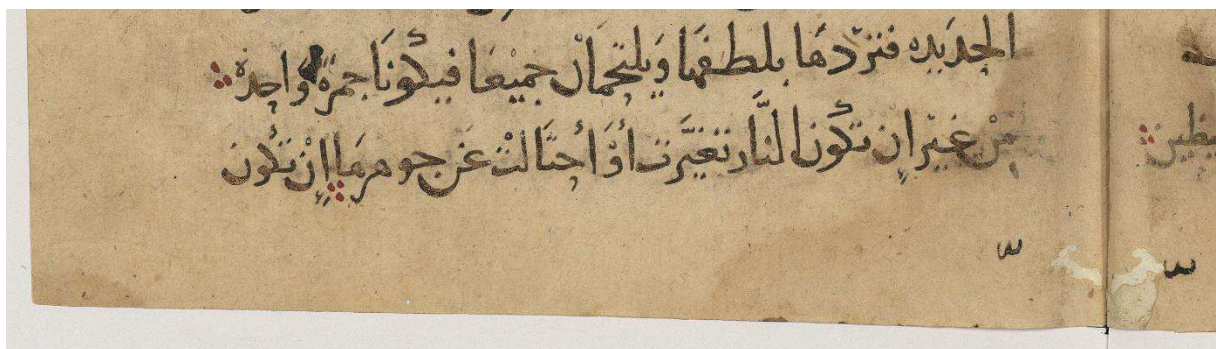 الحديده فتردها بلطفها ويلتحمان جميعا فيكونا جمرة واحدة
من غير ان تكون النار تغيرت أو أحتالت عن جوهرها إن تكون